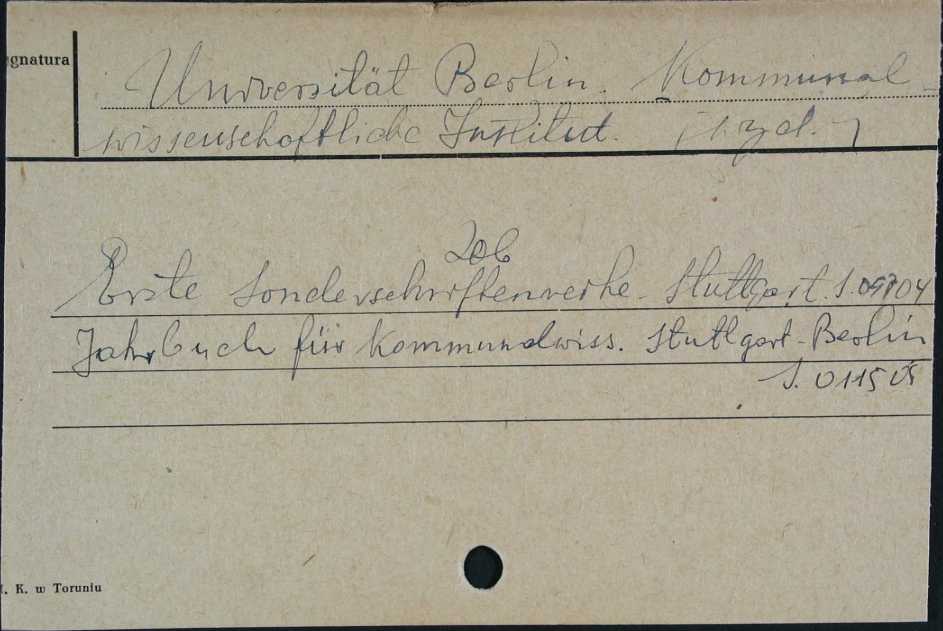 ygnatura
Universität Berlin. Kommunal-
wissenschaftliche Institut. [wyd.]
Zob
Erste Sonderschriftenreihe. Stuttgart. S.
Jahrbuch für Kommunalwiss. Stuttgart-Berlin
S. 011505
. K. w Toruniu